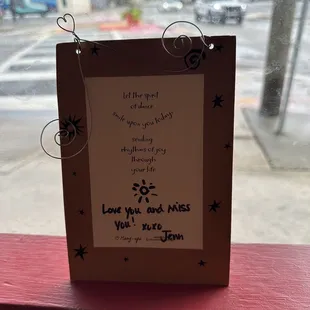 let the spirit
of dance
smile upon you today
sending
rhythms of joy
through
your life
Love you and Miss
You! xoxo
Jenn